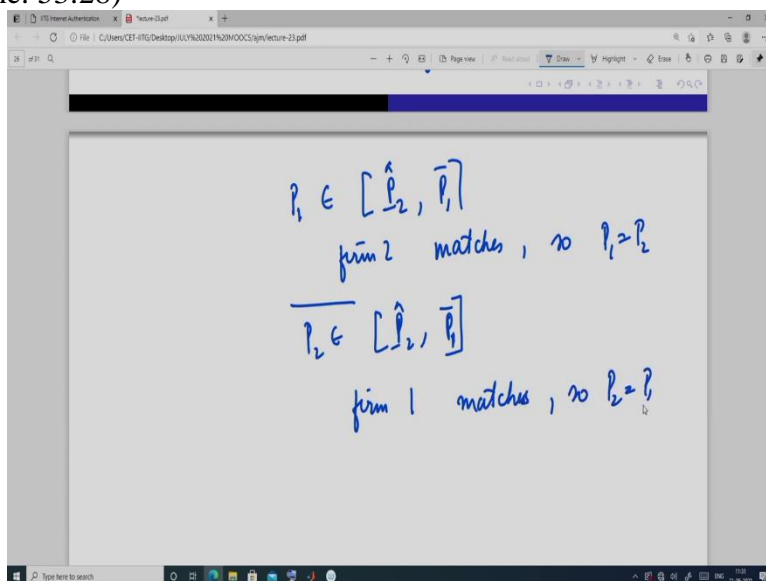 IITG Internet Authentication
lecture-23.pdf
File | C:/Users/CET-IITG/Desktop/JULY%202021%20MOOCS/ajm/lecture-23.pdf
26 of 31
Page view
Read aloud
Draw
Highlight
Erase
P₁ ∈ [P̂₂, P̄₁]
firm 2 matches, so P₁ = P₂
P₂ ∈ [P̂₂, P̄₁]
firm 1 matches, so P₂ = P₁
Type here to search
ENG